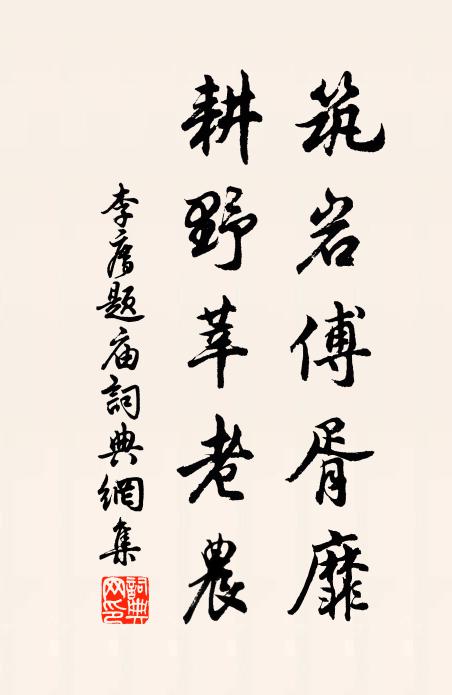 筑岩傅胥靡
耕野莘老農
李廌題庙詞典網集
詞典网印